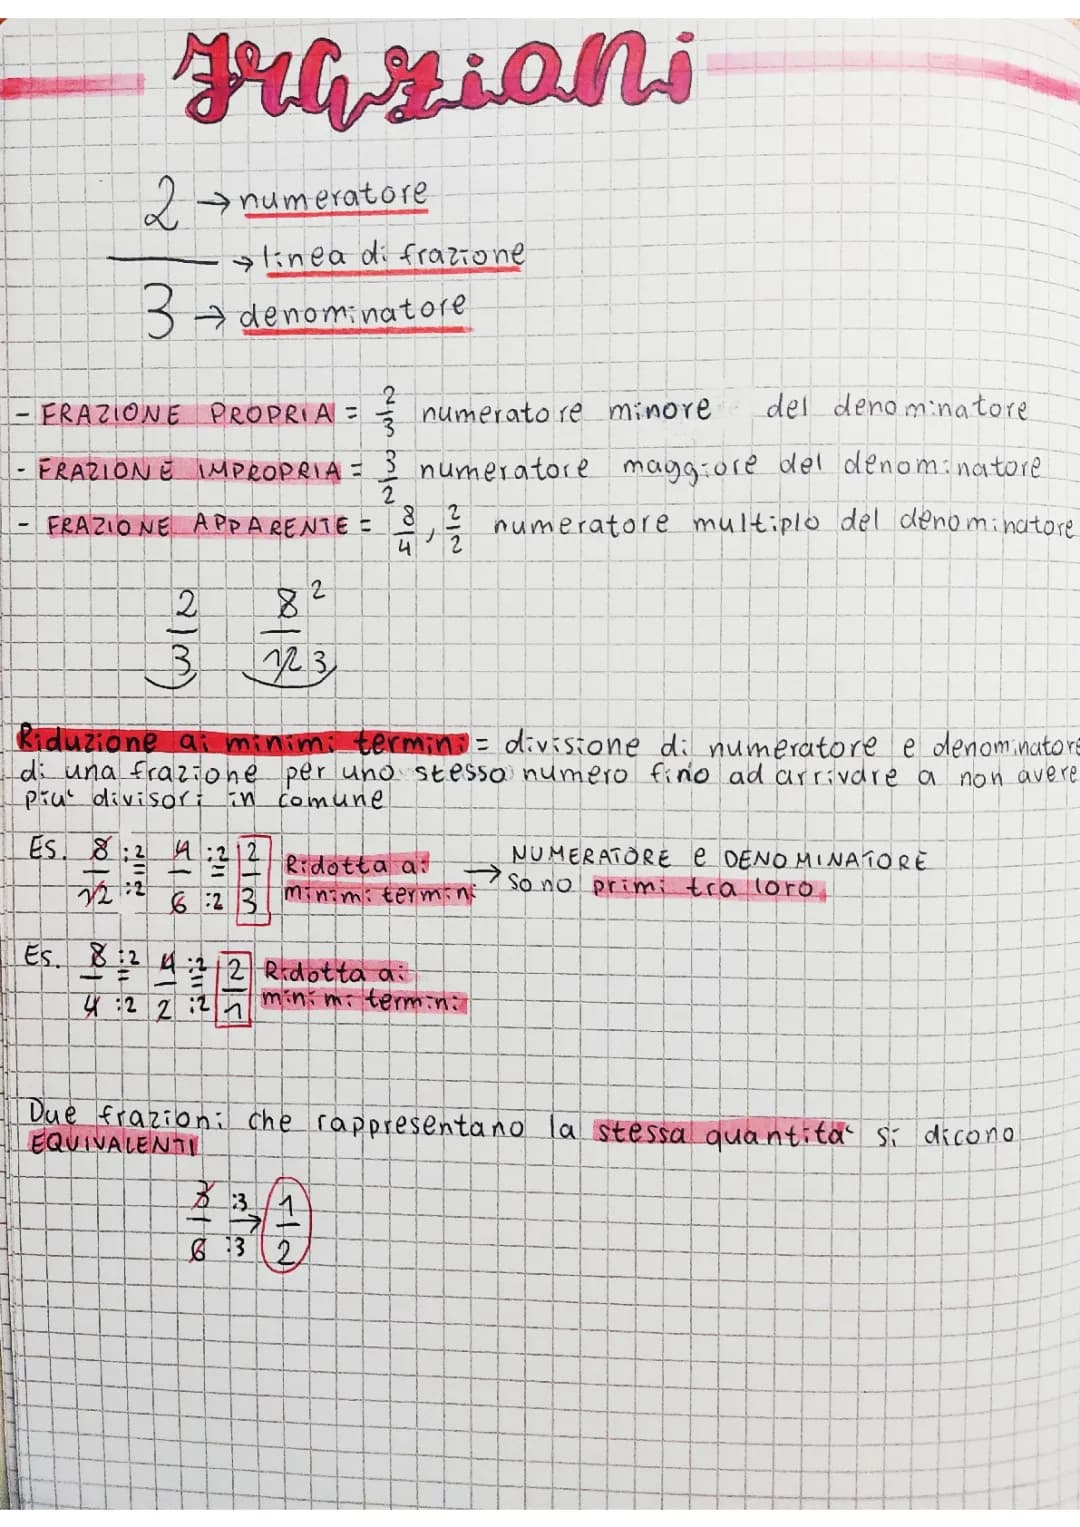 Frazioni
2 → numeratore
→ linea di frazione
3 → denominatore
- FRAZIONE PROPRIA = 2/3 numeratore minore del denominatore
- FRAZIONE IMPROPRIA = 3/2 numeratore maggiore del denominatore
- FRAZIONE APPARENTE = 8/4, 2/2 numeratore multiplo del denominatore
2/3 8/12 2 3
Riduzione ai minimi termini = divisione di numeratore e denominatore
di una frazione per uno stesso numero fino ad arrivare a non avere
piu' divisori in comune
Es. 8/12 :2/:2 = 4/6 :2/:2 = 2/3 Ridotta ai → NUMERATORE e DENOMINATORE
minimi termini sono primi tra loro
Es. 8/4 :2/:2 = 4/2 :2/:2 = 2/1 Ridotta ai
minimi termini
Due frazioni che rappresentano la stessa quantita' si dicono
EQUIVALENTI
3/6 :3/:3 → 1/2